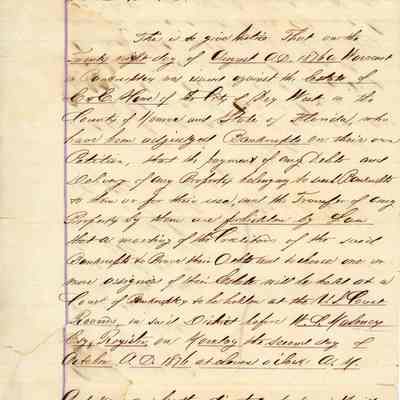 This is to give Notice That on the
Twenty eight day of August A.D. 1876 a Warrant
in Bankruptcy was issued against the Estate of
of the City of Key West, in the
County of Monroe and State of Florida, who
have been adjudged Bankrupts on their own
Petition, that the payment of any Debts and
Delivery of any Property belonging to said Bankrupts
to them or for their use, and the Transfer of any
Property by them are forbidden by Law
that a meeting of the Creditors of the said
Bankrupts to Prove their Debts and to choose one or
more assignees of their Estate will be held at a
Court of Bankruptcy to be holden at the U.S. Court
Rooms, in said District before
Esq. Register on Monday the second day of
October A.D. 1876 at o'clock A.M.